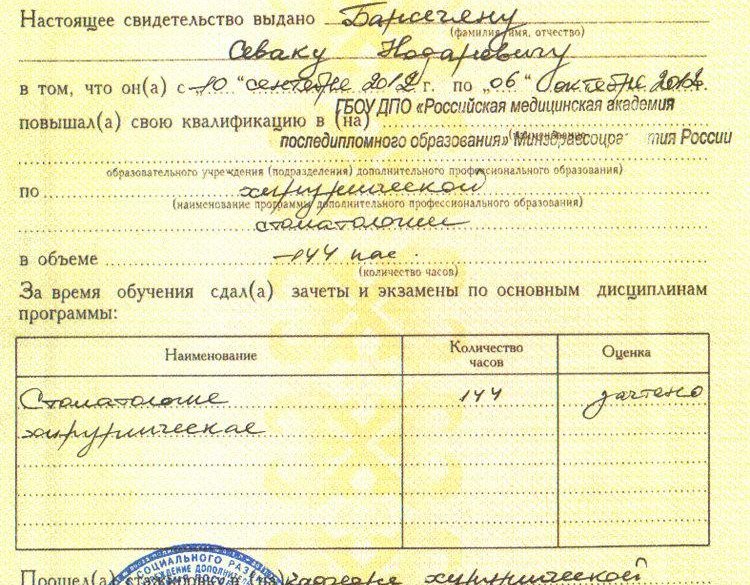 Настоящее свидетельство выдано Барсегяну
(фамилия, имя, отчество)
Севаку Нодаровичу
в том, что он(а) с „10“ сентября 2012 г. по „06“ октября 2012 г.
повышал(а) свою квалификацию в (на) ГБОУ ДПО «Российская медицинская академия
(наименование
последипломного образования» Минздравсоцра тия России
образовательного учреждения (подразделения) дополнительного профессионального образования)
по хирургической
(наименование программы дополнительного профессионального образования)
стоматологии
в объеме 144 час.
(количество часов)
За время обучения сдал(а) зачеты и экзамены по основным дисциплинам
программы:
Наименование Количество часов Оценка
Стоматология 144 зачтено
хирургическая
СОЦИАЛЬНОГО РАЗВ
ДЕНИЕ ДОПОЛНИТЕЛЬ
Прошел(а) стажировку в (на) кафедре хирургической